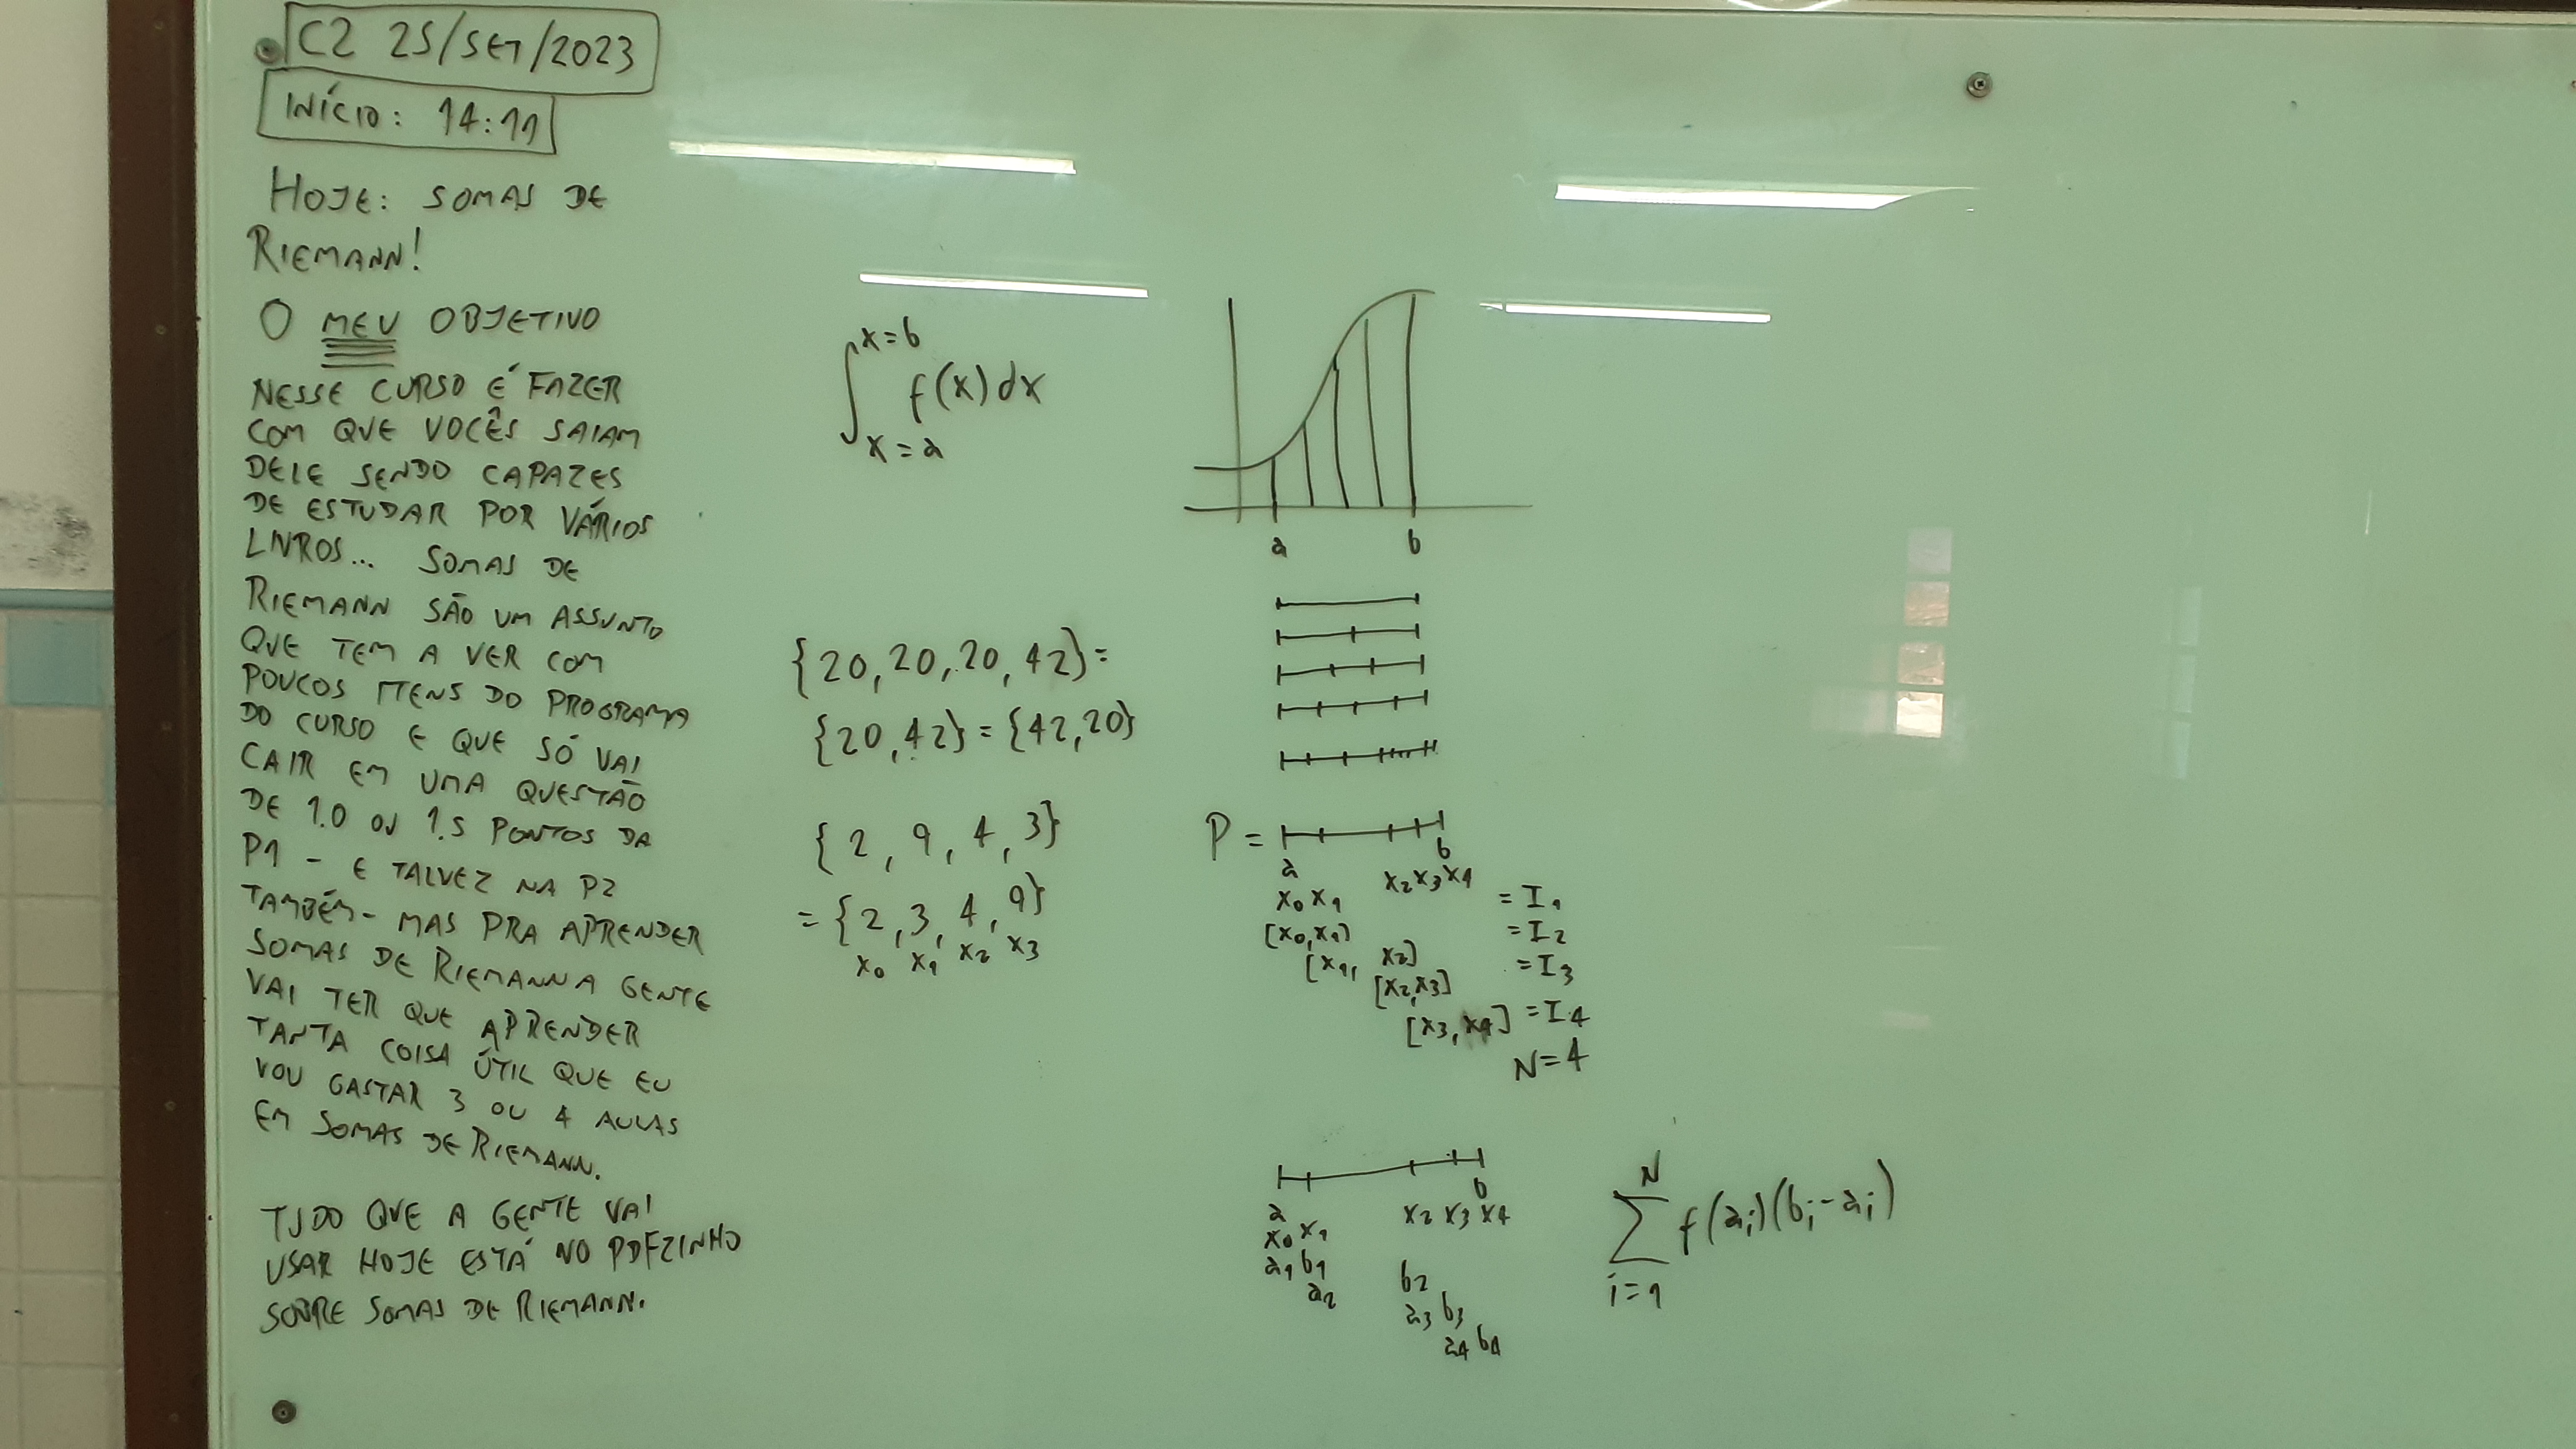 C2 25/SET/2023
INÍCIO: 14:11
HOJE: SOMAS DE
RIEMANN!
O MEU OBJETIVO
NESSE CURSO É FAZER
COM QUE VOCÊS SAIAM
DELE SENDO CAPAZES
DE ESTUDAR POR VÁRIOS
LIVROS... SOMAS DE
RIEMANN SÃO UM ASSUNTO
QUE TEM A VER COM
POUCOS ITENS DO PROGRAMA
DO CURSO E QUE SÓ VAI
CAIR EM UMA QUESTÃO
DE 1.0 OU 1.5 PONTOS DA
P1 - E TALVEZ NA P2
TAMBÉM - MAS PRA APRENDER
SOMAS DE RIEMANN A GENTE
VAI TER QUE APRENDER
TANTA COISA ÚTIL QUE EU
VOU GASTAR 3 OU 4 AULAS
EM SOMAS DE RIEMANN.
TUDO QUE A GENTE VAI
USAR HOJE ESTÁ NO PDFZINHO
SOBRE SOMAS DE RIEMANN.
x=b
∫ f(x)dx
x=a
{20,20,20,42}=
{20,42}={42,20}
{2,9,4,3}
={2,3,4,9}
x₀ x₁ x₂ x₃
a b
P =
a b
x₀ x₁ x₂ x₃ x₄
[x₀,x₁] = I₁
[x₁, x₂] = I₂
[x₂,x₃] = I₃
[x₃,x₄] = I₄
N=4
a b
x₀ x₁ x₂ x₃ x₄
a₁ b₁
a₂ b₂
a₃ b₃
a₄ b₄
N
∑ f(aᵢ)(bᵢ-aᵢ)
i=1